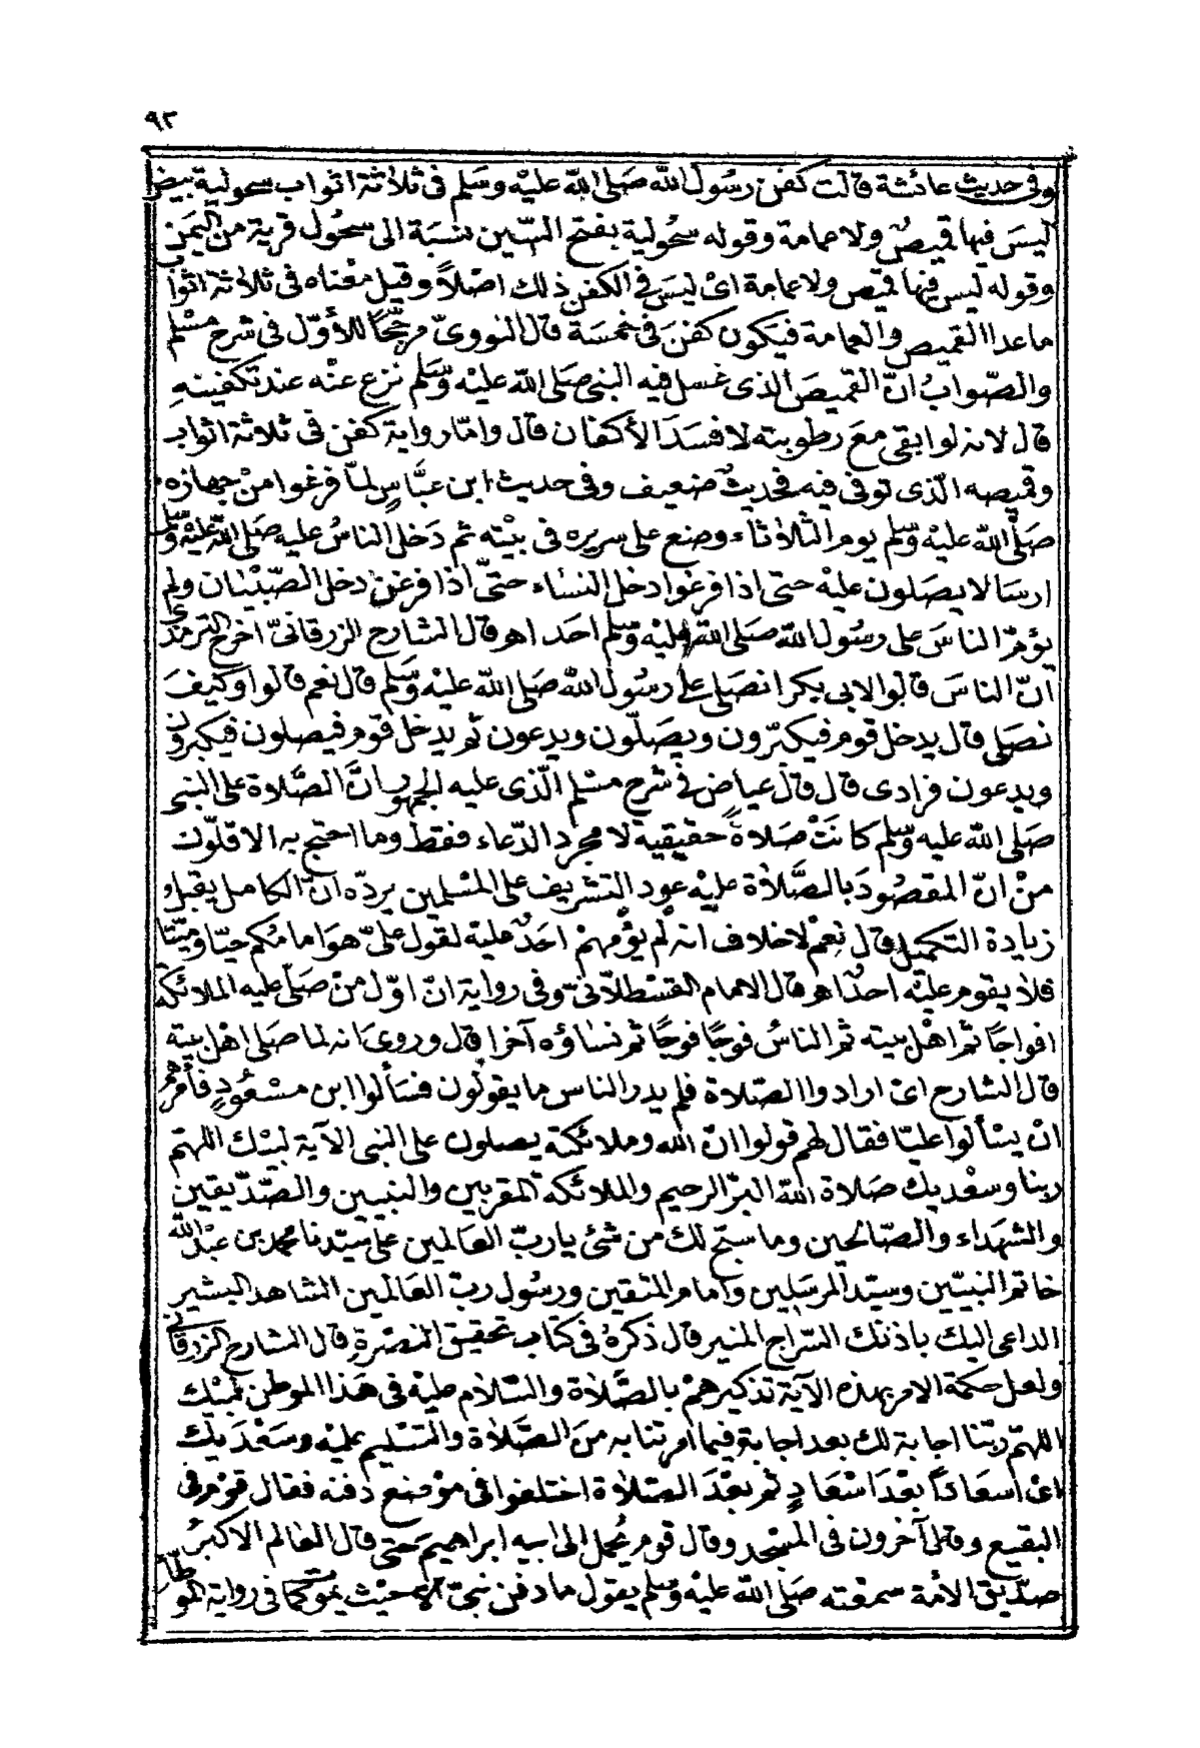 ٩٢
وفى حديث عائشة قالت كفن رسول الله صلى الله عليه وسلم فى ثلاثة اثواب سحولية بيض
ليس فيها قميص ولا عمامة وقوله سحولية بفتح السين نسبة الى سحول قرية من اليمن
وقوله ليس فيها قميص ولا عمامة اى ليس فى الكفن ذلك اصلاً وقيل معناه فى ثلاثة اثواب
ما عدا القميص والعمامة فيكون كفن فى خمسة قال النووى مرجّحاً للأوّل فى شرح مسلم
والصّواب انّ القميص الذى غسل فيه النبى صلى الله عليه وسلم نزع عنه عند تكفينه
قال لانه لو ابقى مع رطوبته لافسد الأكفان قال وامّا رواية كفن فى ثلاثة اثواب
وقميصه الّذى توفى فيه فحديث ضعيف وفى حديث ابن عبّاس لمّا فرغوا من جهازه
صلّى الله عليه وسلم يوم الثلاثاء وضع على سريره فى بيته ثم دخل الناس عليه صلى الله عليه وسلم
ارسالا يصلون عليه حتى اذا فرغوا دخل النساء حتّى اذا فرغن دخل الصّبيان ولم
يؤمّ الناس على رسول الله صلى الله عليه وسلم احد اهـ وقال الشارح الزرقانىّ اخرج الترمذى
انّ الناس قالوا لابى بكر انصلى على رسول الله صلى الله عليه وسلم قال نعم قالوا وكيف
نصلى قال يدخل قوم فيكبّرون ويصلّون ويدعون ثم يدخل قوم فيصلون فيكبرون
ويدعون فرادى قال قال عياض فى شرح مسلم الّذى عليه الجمهور انّ الصّلاة على النبى
صلى الله عليه وسلم كانت صلاةً حقيقية لا مجرد الدّعاء فقط وما احتج به الاقلّون
من انّ المقصود بالصّلاة عليه عود التشريف على المسلمين يردّه انّ الكامل يقبل
زيادة التكميل قال نعم لا خلاف انه لم يؤمهم احدٌ عليه لقول علىّ هو امامكم حيّا وميّتا
فلا يقوم عليه احدٌ اهـ وقال الامام القسطلانىّ وفى رواية انّ اوّل من صلّى عليه الملائكة
افواجاً ثم اهل بيته ثم الناس فوجاً فوجاً ثم نساؤه آخرا قال وروى انه لما صلى اهل بيته
قال الشارح اى ارادوا الصّلاة فلم يدر الناس ما يقولون فسألوا ابن مسعودٍ فأمرهم
ان يسألوا عليّا فقال لهم قولوا انّ الله وملائكته يصلون على النبى الآية لبيك اللهمّ
ربنا وسعديك صلاة الله البرّ الرحيم والملائكة المقربين والنبيين والصّدّيقين
والشهداء والصّالحين وما سبّح لك من شئ يا ربّ العالمين على سيّدنا محمد بن عبد الله
خاتم النبيّين وسيّد المرسلين وامام المتقين ورسول ربّ العالمين الشاهد البشير
الداعى اليك باذنك السّراج المنير قال ذكره فى كتاب تحقيق النصرة قال الشارح الزرقانى
ولعل حكمة الامر بهذه الآية تذكيرهم بالصّلاة والسّلام عليه فى هذا الموطن لبيك
اللهمّ ربّنا اجابة لك بعد اجابة فيما امرتنا به من الصّلاة والتسليم عليه وسعديك
اى اسعاداً بعد اسعادٍ ثم بعد الصّلاة اختلفوا فى موضع دفنه فقال قوم فى
البقيع وقال آخرون فى المسجد وقال قوم يُحمل الى ابيه ابراهيم حتى قال العالم الاكبر
صدّيق الامة سمعته صلى الله عليه وسلم يقول ما دفن نبىّ الا حيث يموت كما فى رواية الموطّا